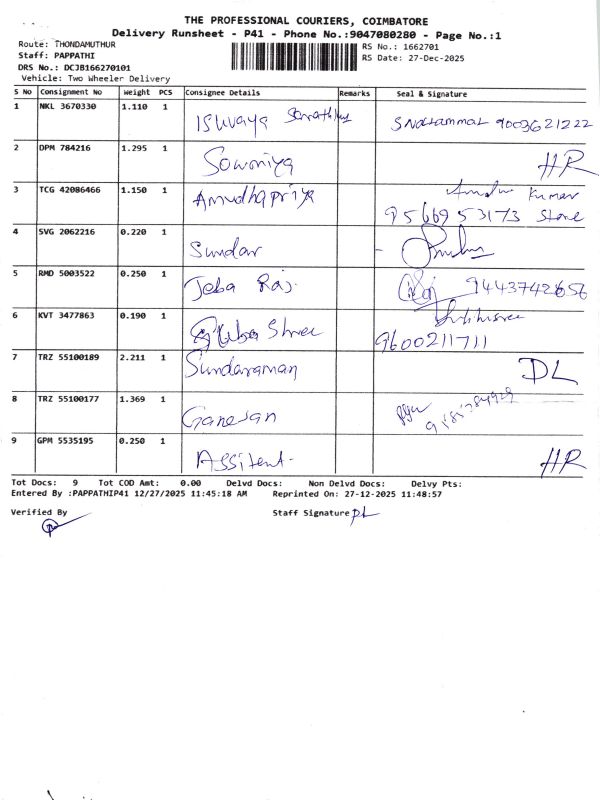 THE PROFESSIONAL COURIERS, COIMBATORE
Delivery Runsheet - P41 - Phone No.:9047080280 - Page No.:1
Route: THONDAMUTHUR
RS No.: 1662701
Staff: PAPPATHI
RS Date: 27-Dec-2025
DRS No.: DCJB166270101
Vehicle: Two Wheeler Delivery
S No Consignment No Weight PCS Consignee Details Remarks Seal & Signature
1 NKL 3670330 1.110 1 Ishvaya 9003621222
2 DPM 784216 1.295 1 Sowmiya HR
3 TCG 42086466 1.150 1 Amudhapriya Kumar
9566953173 Store
4 SVG 2062216 0.220 1 Sundar
5 RMD 5003522 0.250 1 Jeba Raj. 9443742656
6 KVT 3477863 0.190 1 Shree
9600211711
7 TRZ 55100189 2.211 1 Sundaraman DL
8 TRZ 55100177 1.369 1 Ganesan
9 GPM 5535195 0.250 1 Assitent. HR
Tot Docs: 9 Tot COD Amt: 0.00 Delvd Docs: Non Delvd Docs: Delvy Pts:
Entered By :PAPPATHIP41 12/27/2025 11:45:18 AM Reprinted On: 27-12-2025 11:48:57
Verified By Staff Signature DL